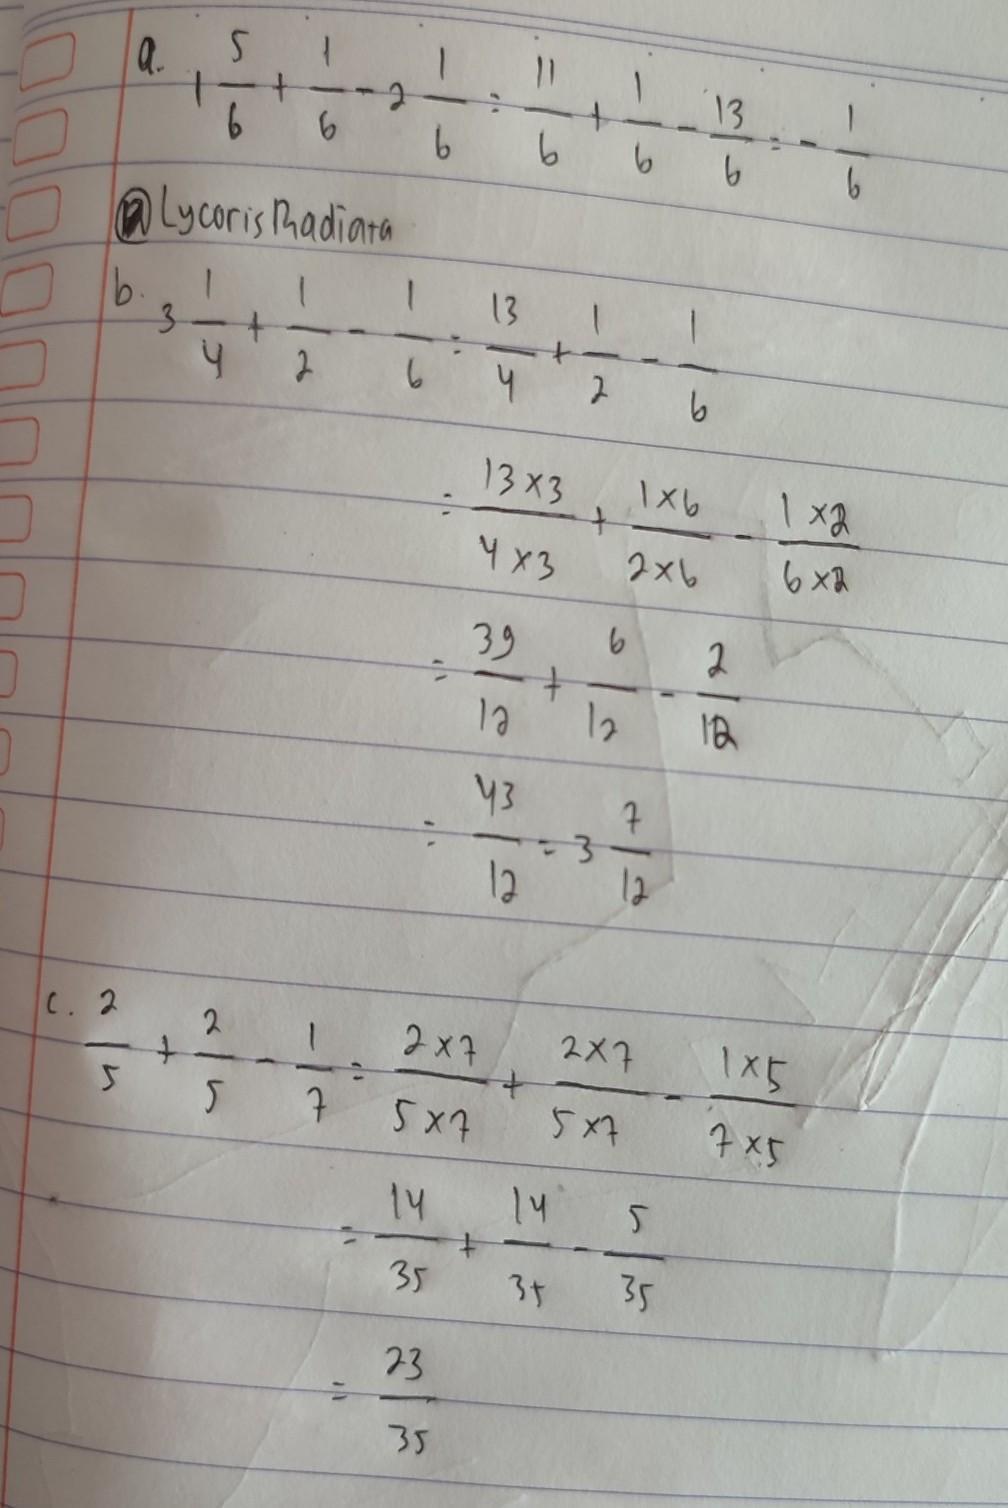 a. 1 5/6 + 1/6 - 2 1/6 = 11/6 + 1/6 - 13/6 = - 1/6
@LycorisRadiata
b. 3 1/4 + 1/2 - 1/6 = 13/4 + 1/2 - 1/6
= 13×3/4×3 + 1×6/2×6 - 1×2/6×2
= 39/12 + 6/12 - 2/12
= 43/12 = 3 7/12
c. 2/5 + 2/5 - 1/7 = 2×7/5×7 + 2×7/5×7 - 1×5/7×5
= 14/35 + 14/35 - 5/35
= 23/35